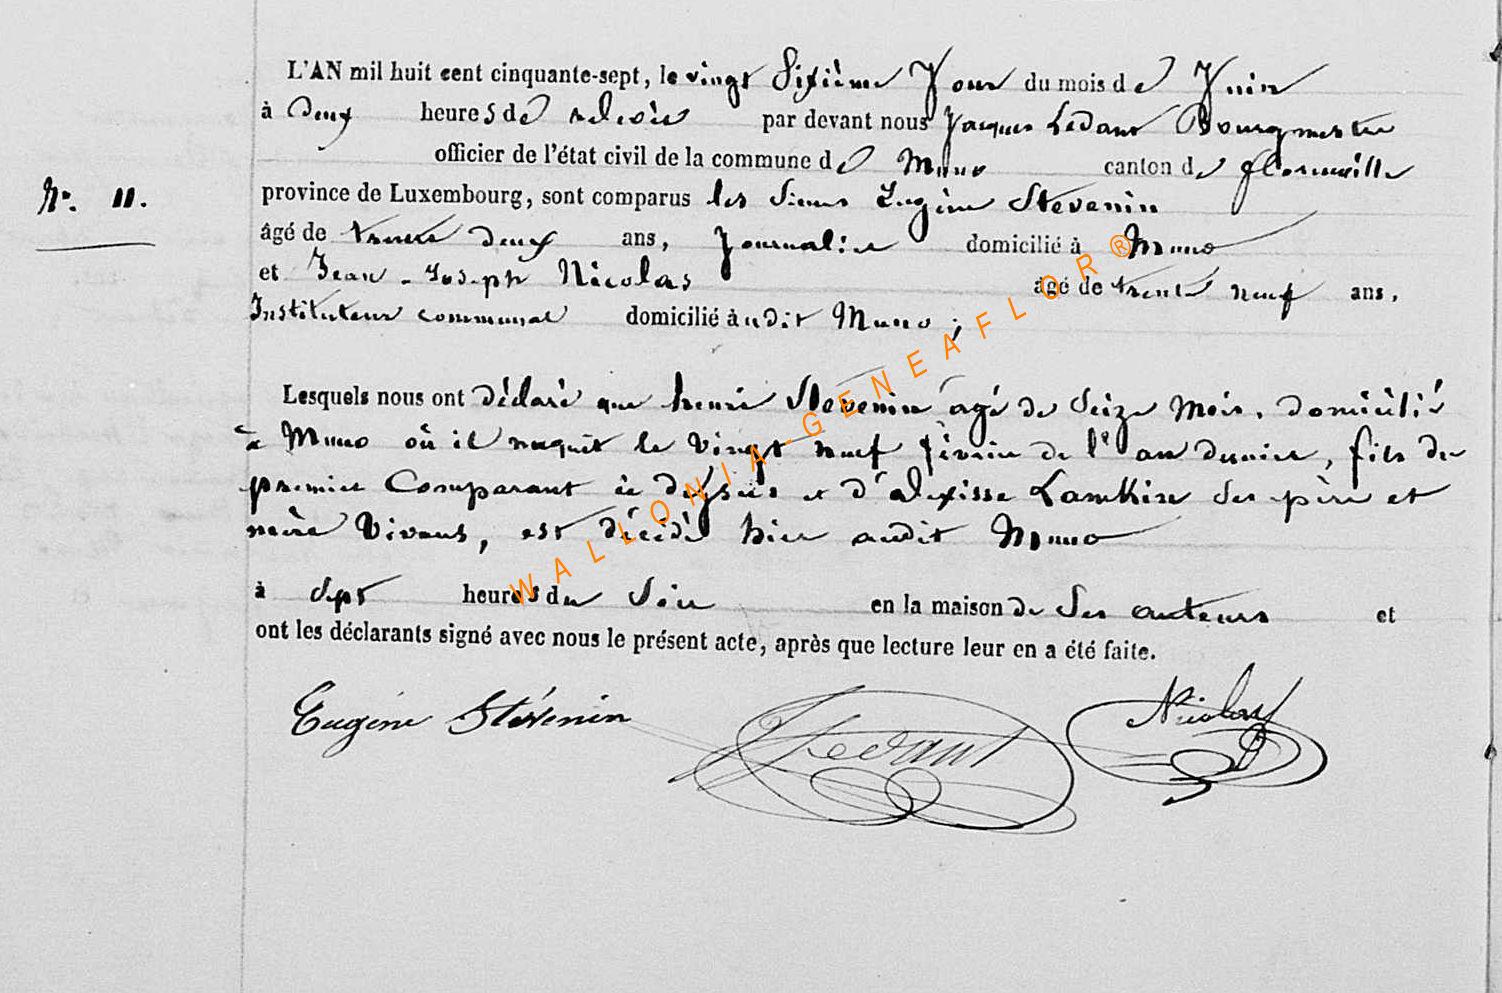 L'AN mil huit cent cinquante-sept, le vingt Sixième Jour du mois de Juin
à Deux heures de relevée par devant nous Jacques Ledant Bourgmestre
officier de l'état civil de la commune de Muno canton de florenville
N°. 11. province de Luxembourg, sont comparus les Sieurs Eugène Stévenin
âgé de trente deux ans, Journalier domicilié à Muno
et Jean-Joseph Nicolas âgé de trente neuf ans,
Instituteur communal domicilié audit Muno;
Lesquels nous ont déclaré que henri Stévenin âgé de Seize Mois, domicilié
à Muno où il naquit le Vingt neuf février de l'an dernier, fils du
premier Comparant ci dessus et d'alexisse Lambkin Ses père et
mère Vivans, est décédé hier audit Muno
à Sept heures du Soir en la maison de Ses auteurs et
ont les déclarants signé avec nous le présent acte, après que lecture leur en a été faite.
Eugéne Stévenin Ledant Nicolas
WALLONIA-GENEAFLOR®